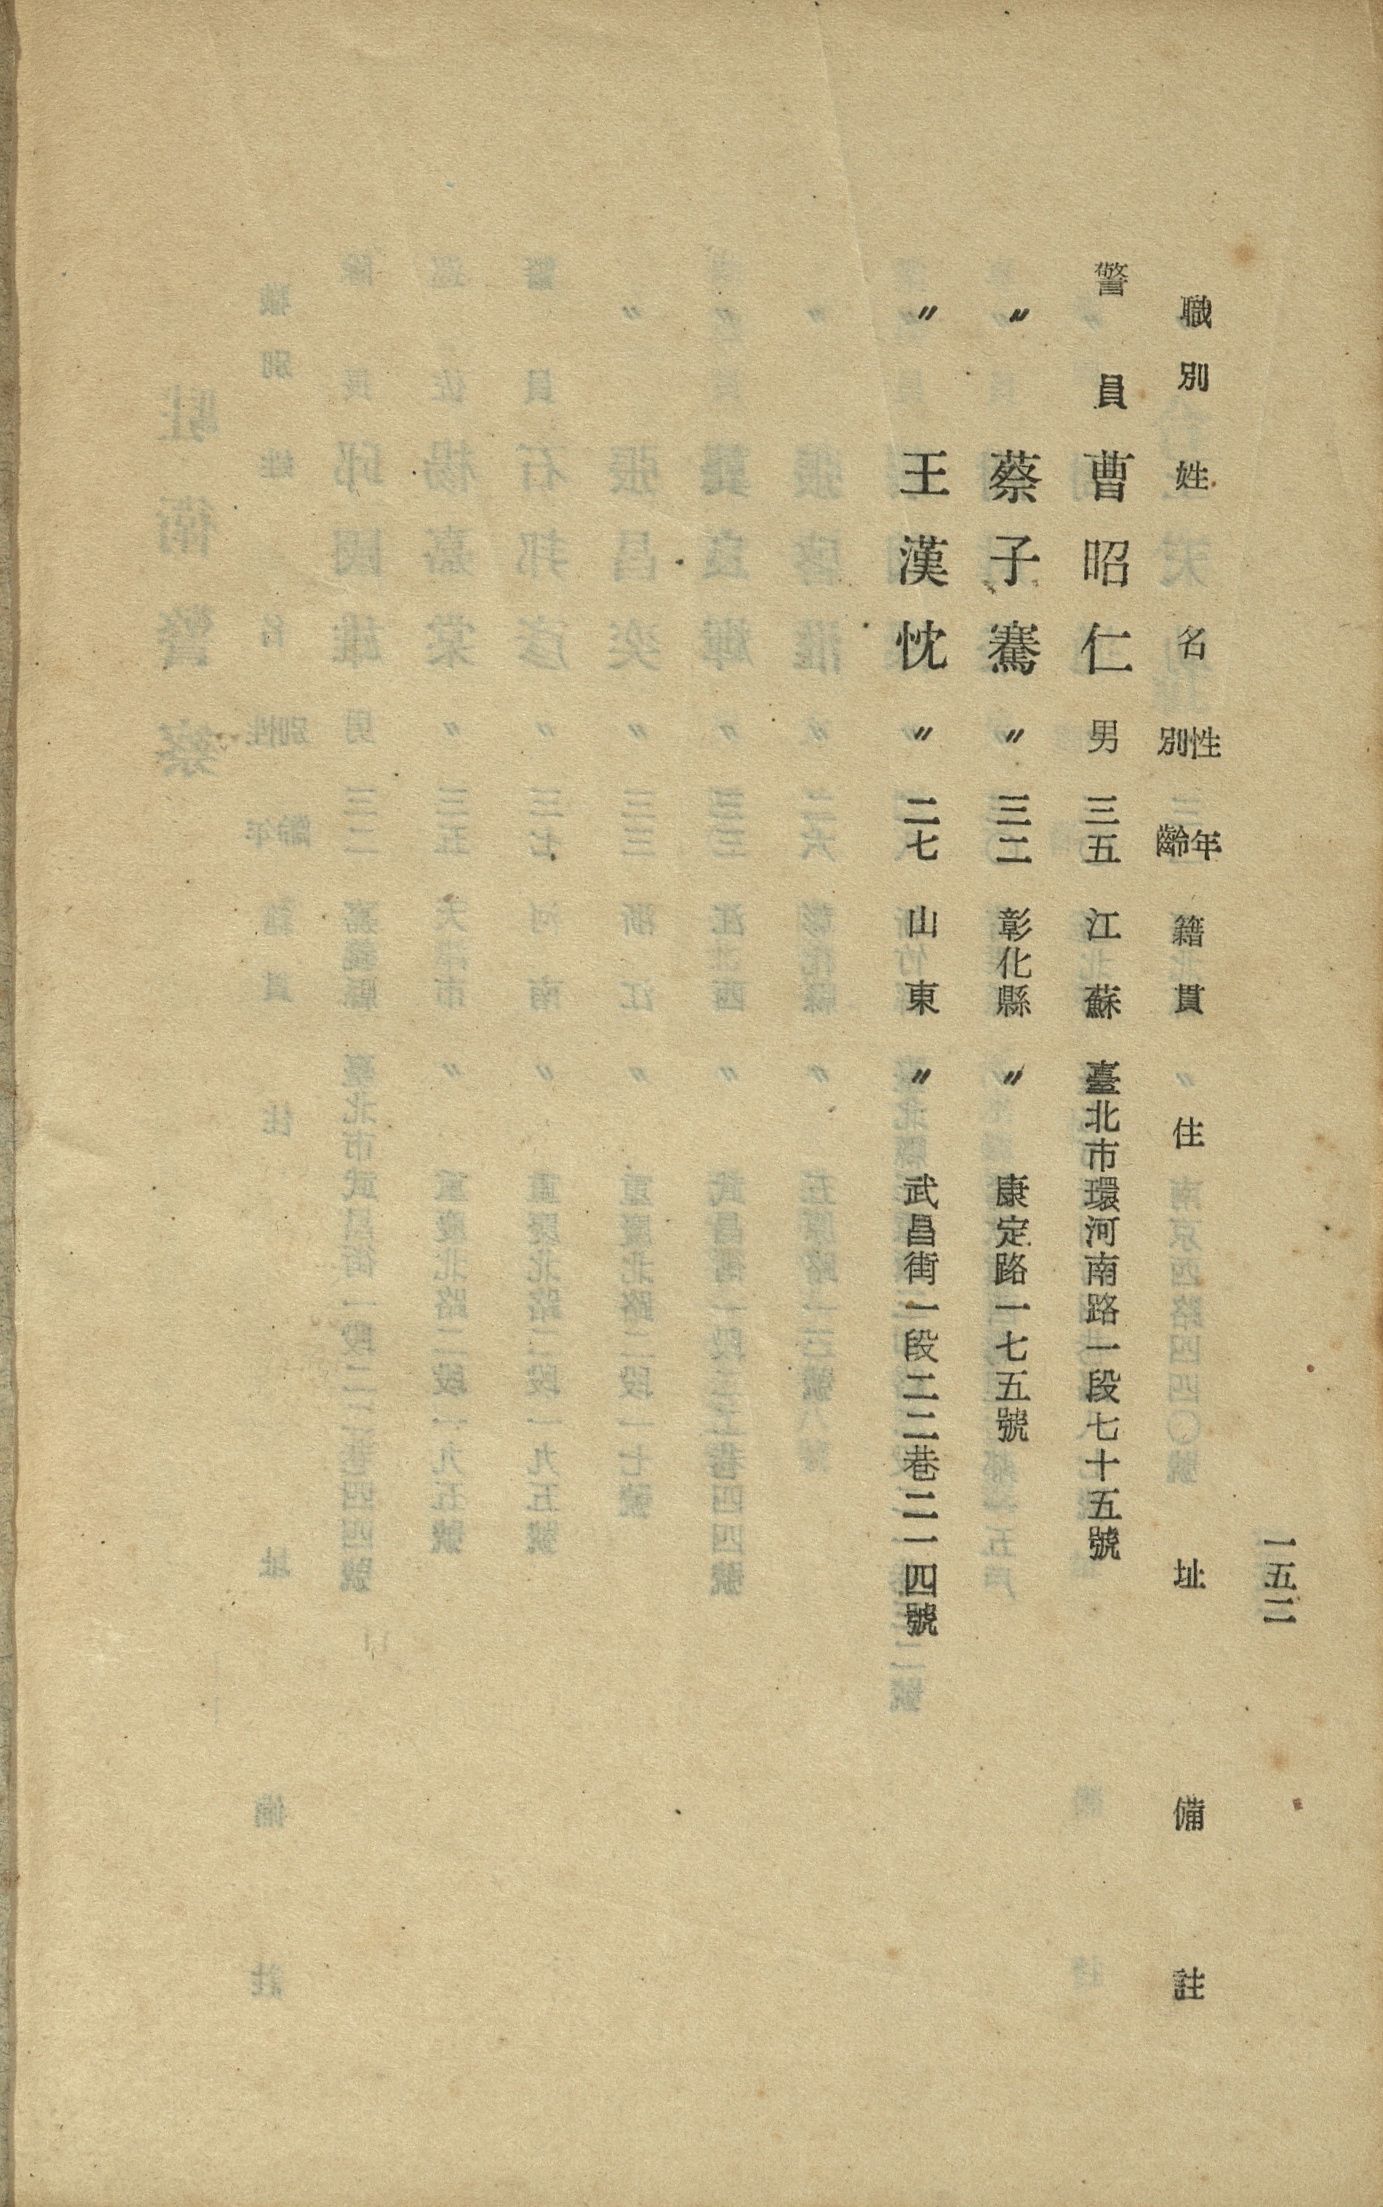 一五二
職別 姓名 性別 年齡 籍貫 住址 備註
警員 曹昭仁 男 三五 江蘇 臺北市環河南路一段七十五號
〃 蔡子騫 〃 三二 彰化縣 〃 康定路一七五號
〃 王漢忱 〃 二七 山東 〃 武昌街一段二二巷二一四號